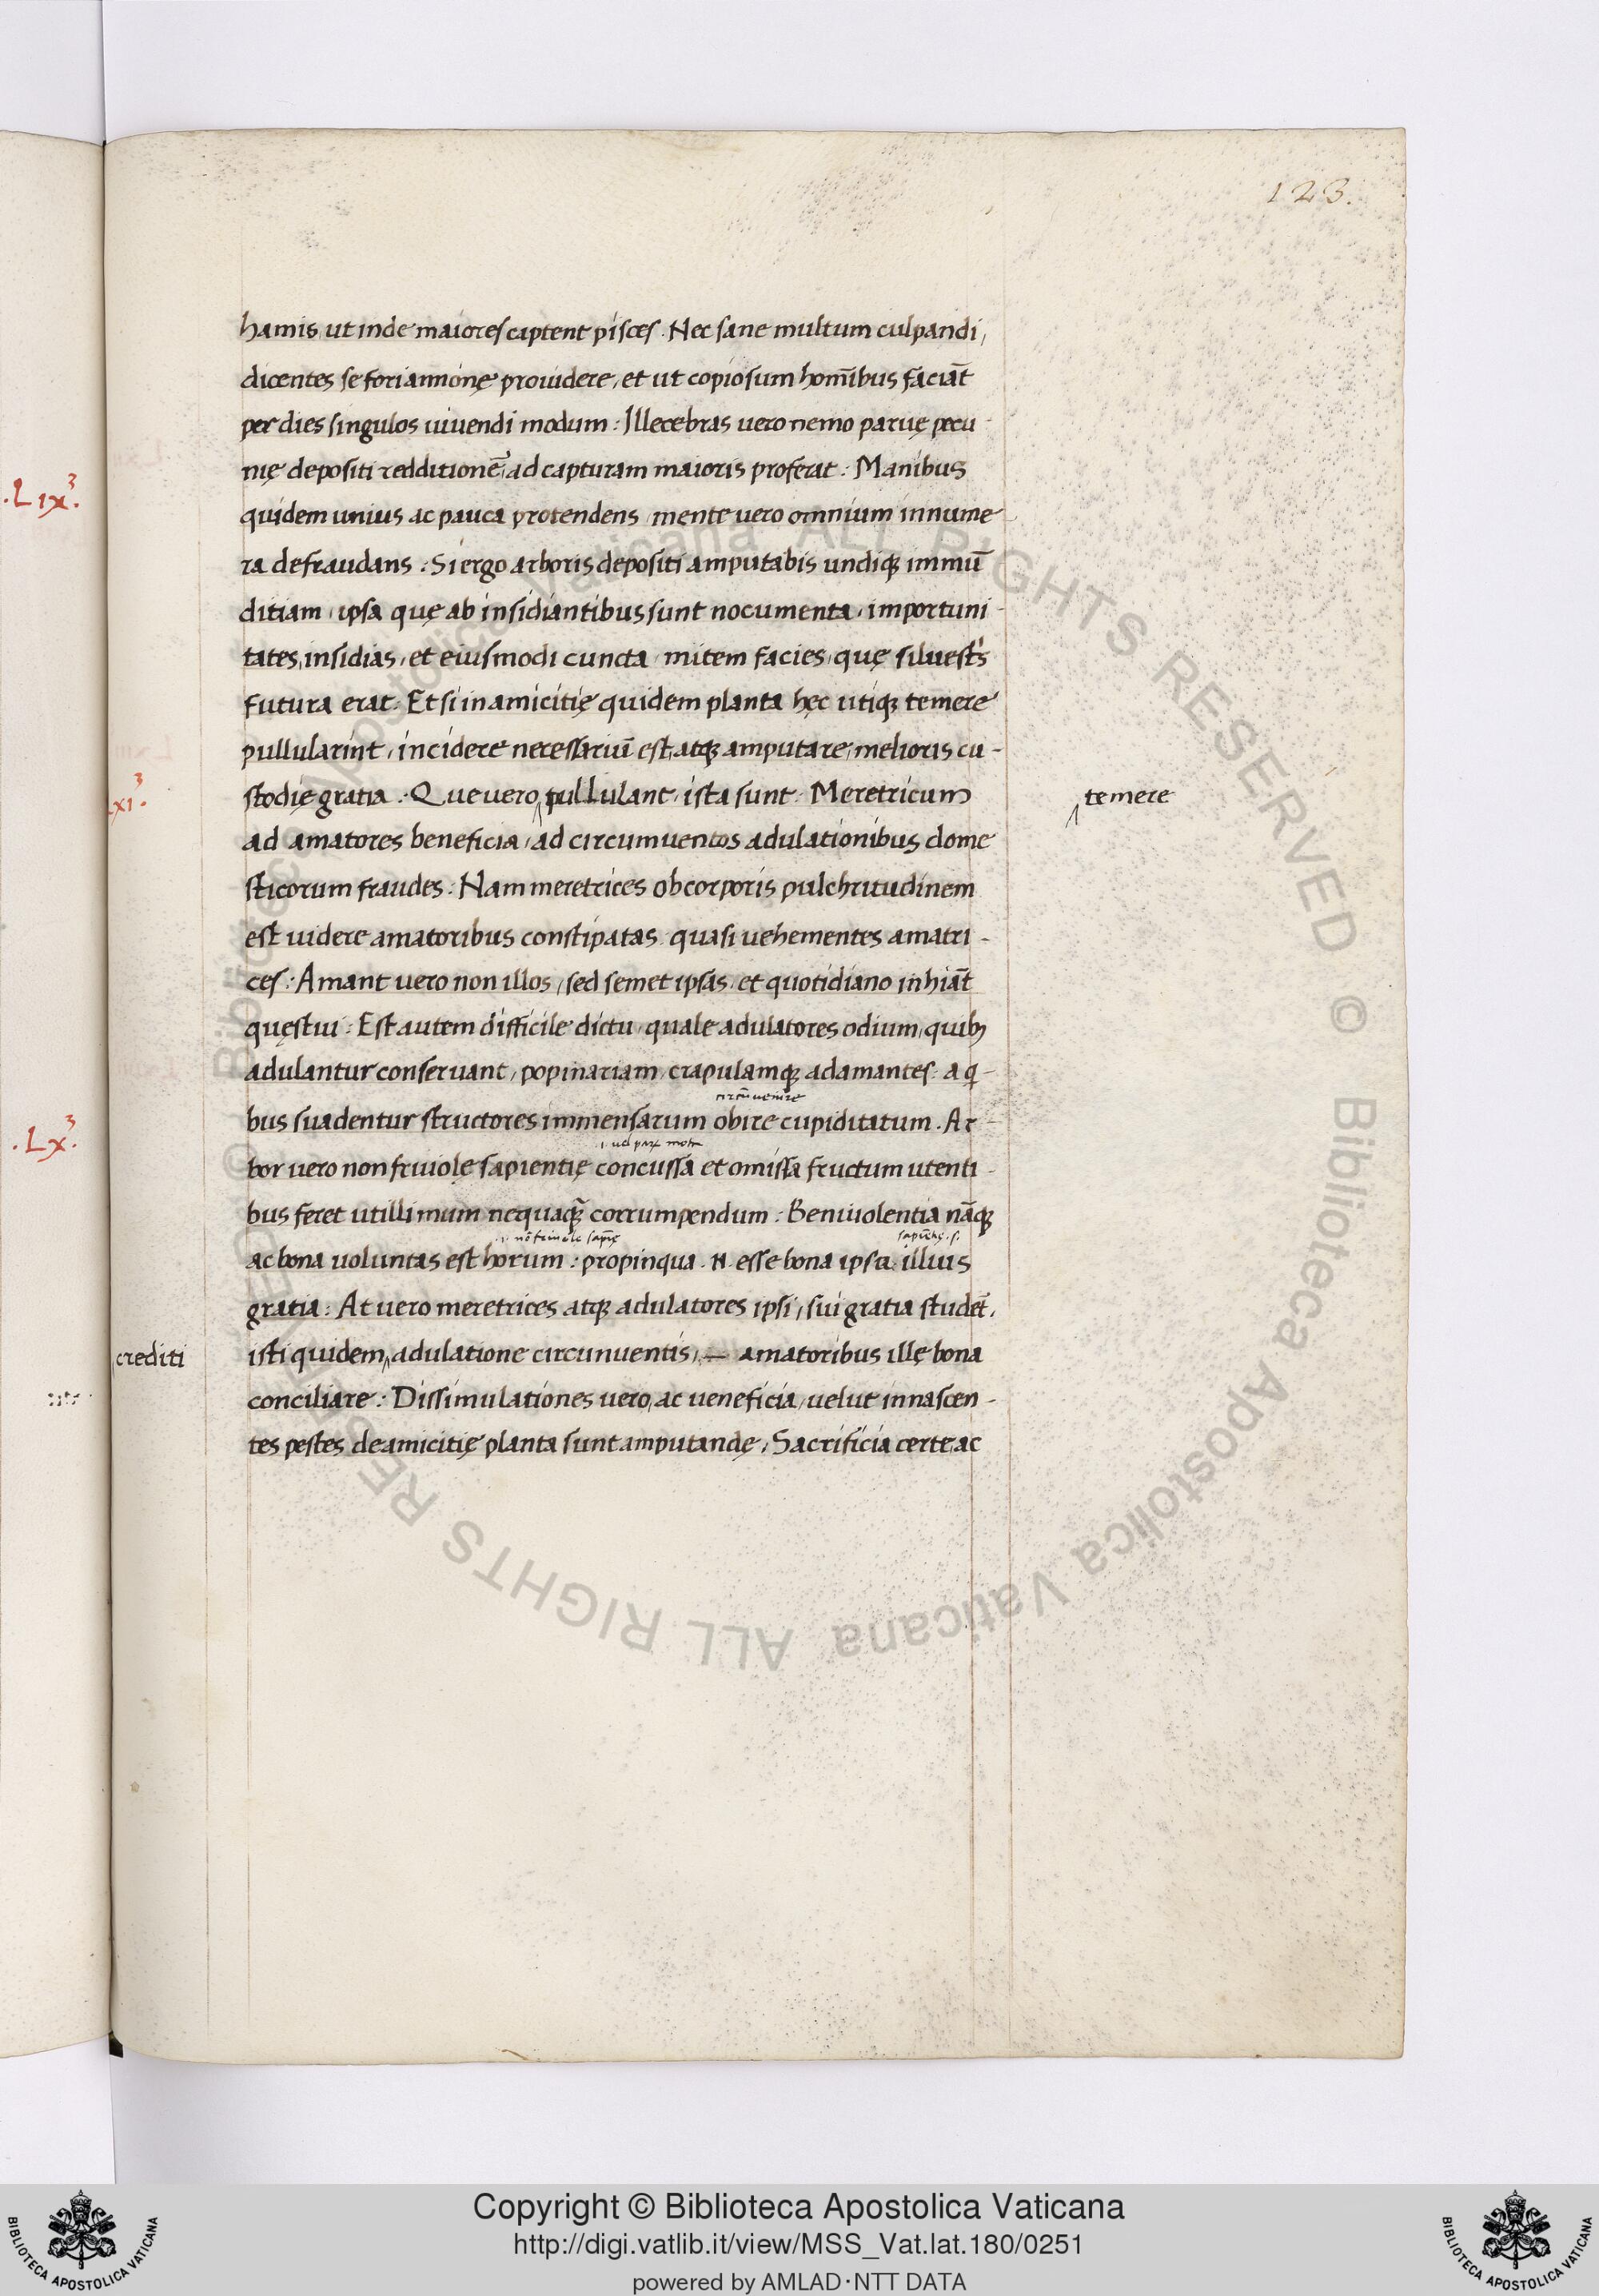 123.
hamis, ut inde maiores captent pisces. Nec sane multum culpandi,
dicentes se fori annonę prouidere, et ut copiosum homībus faciāt
per dies singulos uiuendi modum: Illecebras uero nemo paruę pecu
nię depositi redditionē, ad capturam maioris proferat: Manibus
.Lix³.
quidem unius ac pauca protendens, mente uero omnium innume
ra defraudans. Si ergo arboris depositi amputabis undiqꝫ immū
ditiam, ipsa quę ab insidiantibus sunt nocumenta, importuni-
tates, insidias, et eiusmodi cuncta, mitem facies, quę siluestis
futura erat. Et si in amicitię quidem planta hęc utiqꝫ temere
pullularint, incidere necessariū est, atqꝫ amputare, melioris cu-
stodię gratia. Que uero pullulant, ista sunt. Meretricum
temere
xi³.
ad amatores beneficia, ad circumuentos adulationibus dome
sticorum fraudes: Nam meretrices ob corporis pulchritudinem
est uidere amatoribus constipatas quasi uehementes amatri-
ces: Amant uero non illos, sed semet ipsas, et quotidiano inhiāt
quęstui: Est autem difficile dictu, quale adulatores odium, quibꝫ
adulantur conseruant, popinariam, crapulamqꝫ adamantes. a q-
circūuenire
bus suadentur structores immensarum obire cupiditatum. Ar-
.Lx³.
bor uero non friuolę sapientię concussa et omissa fructum utenti-
bus feret utillimum nequaqꝫ corrumpendum: Beniuolentia nāqꝫ
ac bona uoluntas est horum: propinqua .N. esse bona ipsa illius
gratia: At uero meretrices atqꝫ adulatores ipsi, sui gratia studēt,
crediti
isti quidem, adulatione circunuentis, — amatoribus illę bona
conciliare: Dissimulationes uero, ac ueneficia, uelut innascen-
tes pestes de amicitię planta sunt amputandę, Sacrificia certe, ac
© Biblioteca Apostolica Vaticana ALL RIGHTS RESERVED © Biblioteca Apostolica Vaticana ALL RIGHTS RESERVED
Copyright © Biblioteca Apostolica Vaticana
http://digi.vatlib.it/view/MSS_Vat.lat.180/0251
powered by AMLAD·NTT DATA
BIBLIOTECA APOSTOLICA VATICANA
BIBLIOTECA APOSTOLICA VATICANA